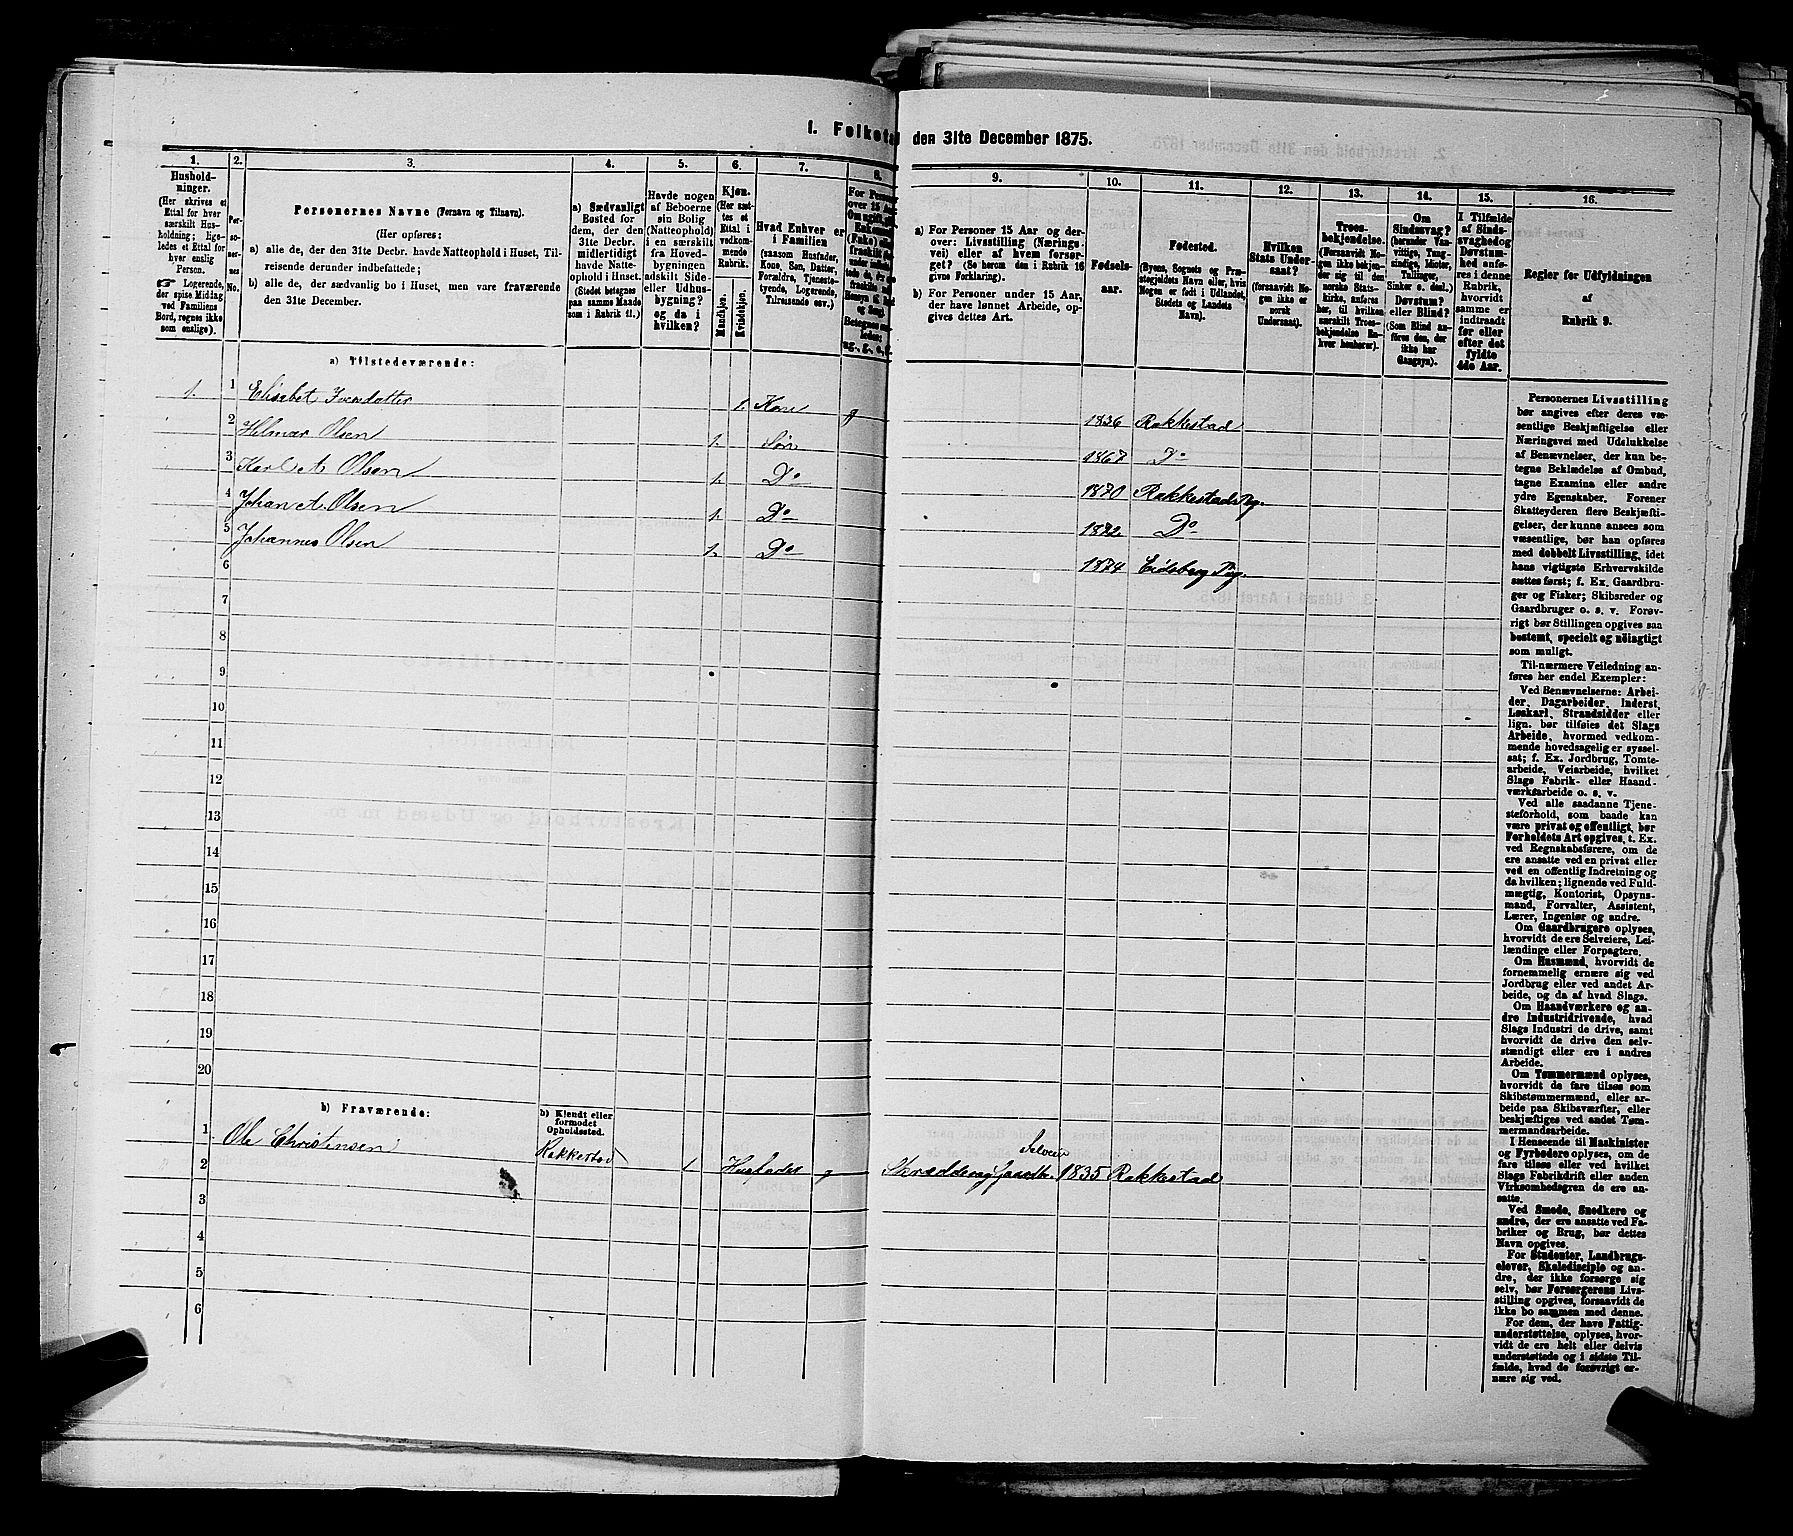 1. Folketal den 31te December 1875.
1.
Husholdninger.
(Her skrives et
Ettal for hver
særskilt Husholdning; ligeledes
et Ettal for
hver enslig
Person.
☞ Logerende,
der spise Middag
ved Familiens
Bord, regnes ikke
som enslige).
2.
Personernes
No.
3.
Personernes Navne (Fornavn og Tilnavn).
(Her opføres:
a) alle de, der den 31te Decbr. havde Natteophold i Huset, Tilreisende derunder indbefattede;
b) alle de, der sædvanlig bo i Huset, men vare fraværende
den 31te December.
4.
a) Sædvanligt
Bosted for
dem, der den
31te Decbr.
midlertidigt
havde Natteophold i Huset.
(Stedet betegnes
paa samme Maade
som i Rubrik 11.)
5.
Havde nogen
af Beboerne
sin Bolig
(Natteophold)
i en særskilt
fra Hovedbygningen
adskilt Side-
eller Udhusbygning?
og da i
hvilken?
6.
Kjøn.
(Her sættes et
Ettal i
vedkommende
Rubrik.
Mandkjøn.
Kvindekjøn.
7.
Hvad Enhver er
i Familien
(saasom Husfader,
Kone, Søn, Datter,
Forældre, Tjenestetyende, Logerende,
Tilreisende osv.)
8.
9.
a) For Personer 15 Aar og derover: Livsstilling (Næringsvei) eller af hvem forsørget? (Se herom den i Rubrik 16
givne Forklaring).
b) For Personer under 15 Aar,
der have lønnet Arbeide, opgives dettes Art.
10.
Fødselsaar.
11.
Fødested.
(Byens, Sognets og Præstegjeldets Navn eller, hvis
Nogen er født i Udlandet,
Stedets og Landets
Navn).
12.
Hvilken
Stats Undersaat?
(forsaavidt Nogen ikke er
norsk
Undersaat).
13.
Troesbekjendelse.
(Forsaavidt Nogen ikke bekjender sig til den
norske Statskirke, anføres
her, til hvilken
særskilt Troesbekjendelse Enhver henhører).
14.
Om
Sindssvag?
(herunder Vanvittige, Tungsindige, Idioter,
Tullinger,
Sinker o. desl.)
Døvstum?
eller Blind?
(Som Blind anføres den, der
ikke har
Gangsyn).
15.
I Tilfælde
af Sindssvaghed og
Døvstumhed anføres i denne
Rubrik,
hvorvidt
samme er
indtraadt
før eller
efter det
fyldte
4de Aar.
16.
Regler for Udfyldningen
af
Rubrik 9.
a) Tilstedeværende:
1. 1 Elisabet Iversdatter 1. Kone g 1836 Rakkestad
2 Helmar Olsen 1. Søn 1867 Do
3 Karl A Olsen 1. Do 1870 Rakkestad Pg.
4 Johan A. Olsen 1. Do 1872 Do
5 Johannes Olsen 1. Do 1874 Eidsberg Pg.
6
7
8
9
10
11
12
13
14
15
16
17
18
19
20
b) Fraværende:
b) Kjendt eller
formodet
Opholdssted.
1 Ole Christensen Rakkestad 1. Husfader g Skrædder og Gaardbr. Selveier 1835 Rakkestad
2
3
4
5
6
Personernes Livsstilling
bør angives efter deres væsentlige Beskjæftigelse eller
Næringsvei med Udelukkelse
af Benævnelser, der kun betegne Beklædelse af Ombud,
tagne Examina eller andre
ydre Egenskaber. Forener
Skatteyderen flere Beskjæftigelser, der kunne ansees som
væsentlige, bør han opføres
med dobbelt Livsstilling, idet
hans vigtigste Erhvervskilde
sættes først; f. Ex. Gaardbruger og Fisker; Skibsreder og
Gaardbruger o. s. v. Forøvrigt bør Stillingen opgives saa
bestemt, specielt og nøiagtigt
som muligt.
Til nærmere Veiledning anføres her endel Exempler:
Ved Benævnelserne: Arbeider, Dagarbeider, Inderst,
Løskarl, Strandsidder eller
lign. bør tilføies det Slags
Arbeide, hvormed vedkommende hovedsagelig er sysselsat; f. Ex. Jordbrug, Tomtearbeide, Veiarbeide, hvilket
Slags Fabrik- eller Haandværksarbeide o. s. v.
Ved alle saadanne Tjenesteforhold, som baade kan
være privat og offentligt, bør
Forholdets Art opgives, t. Ex.
ved Regnskabsførere, om de
ere ansatte ved en privat eller
ved en offentlig Indretning og
da hvilken; lignende ved Fuldmægtig, Kontorist, Opsynsmand, Forvalter, Assistent,
Lærer, Ingeniør og andre.
Om Gaardbrugere oplyses,
hvorvidt de ere Selveiere, Leilændinge eller Forpagtere.
Om Husmænd, hvorvidt de
fornemmelig ernære sig ved
Jordbrug eller ved andet Arbeide, og da af hvad Slags.
Om Haandværkere og andre Industridrivende, hvad
Slags Industri de drive, samt
hvorvidt de drive den selvstændigt eller ere i andres
Arbeide.
Om Tømmermænd oplyses,
hvorvidt de fare tilsøs som
Skibstømmermænd, eller arbeide paa Skibsværfter, eller
beskjæftiges ved andet Tømmermandsarbeide.
I Henseende til Maskinister
og Fyrbødere oplyses, om de
fare tilsøs eller ved hvilket
Slags Fabrikdrift eller anden
Virksomhedsgren de ere ansatte.
Ved Smede, Snedkere og
andre, der ere ansatte ved Fabriker og Brug, bør dettes
Navn opgives.
For Studenter, Landbrugselever, Skoledisciple og andre, der ikke forsørge sig
selv, bør Forsørgerens Livsstilling opgives, forsaavidt de
ikke bo sammen med denne.
For dem, der have Fattigunderstøttelse, oplyses, hvorvidt de ere helt eller delvis
understøttede og i sidste Tilfælde, hvad de forøvrigt ernære sig ved.